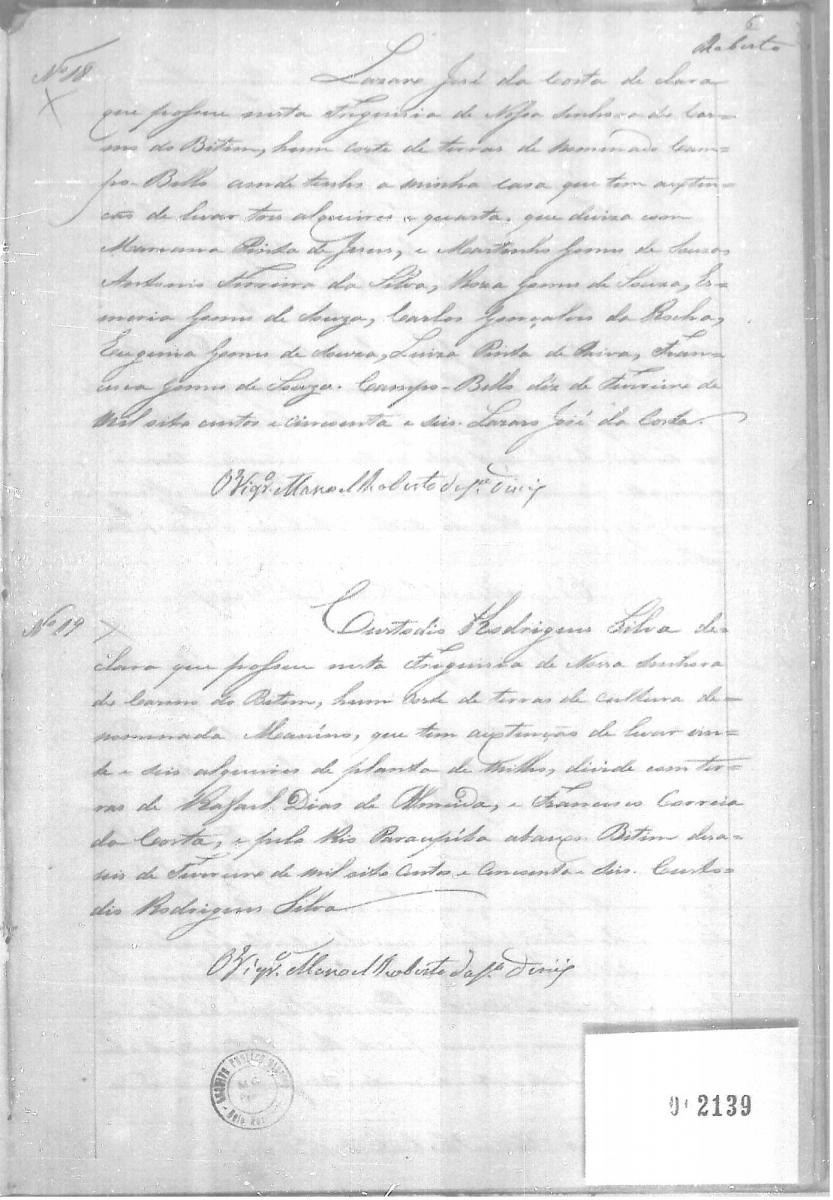 6
Roberto
Nº 18
Lazaro José da Costa de clara
que possue nesta Freguisia de Nossa Senhora do Car-
mo do Betim, hum corte de terras de nominado Cam-
po-Bello aonde tenho a minha casa que tem aexten-
cão de levar tres alqueires e quarta, que diviza com
Marianna Pinta de Jesus, e Martinho Gomes de Souza,
Antonio Ferreira da Silva, Roza Gomes de Souza, Es-
meria Gomes de Souza, Carlos Gonçalves da Rocha,
Eugenia Gomes de Souza, Luiza Pinta de Paiva, Fran-
cisca Gomes de Souza. Campo-Bello dez de Fevereiro de
mil oito centos e cincoenta e seis. Lazaro José da Costa.
O Vigrº. Manoel Roberto da Sª. Diniz
Nº 19
Custodio Rodrigues Silva de-
clara que possue nesta Freguisia de Nossa Senhora
do Carmo do Betim, hum corte de terras de cultura de-
nominada que tem aextenção de levar vin-
te e seis alqueires de planta de milho, divide com ter-
ras de Rafael Dias de Almeida, e Francisco Correia
da Costa, e pelo Rio Paraupéba abaixo. Betim deza-
seis de Fevereiro de mil oito centos e cincoenta e seis. Custo-
dio Rodrigues Silva
O Vigrº. Manoel Roberto da Sª. Diniz
ARQUIVO PUBLICO MINEIRO
M.G.
2139